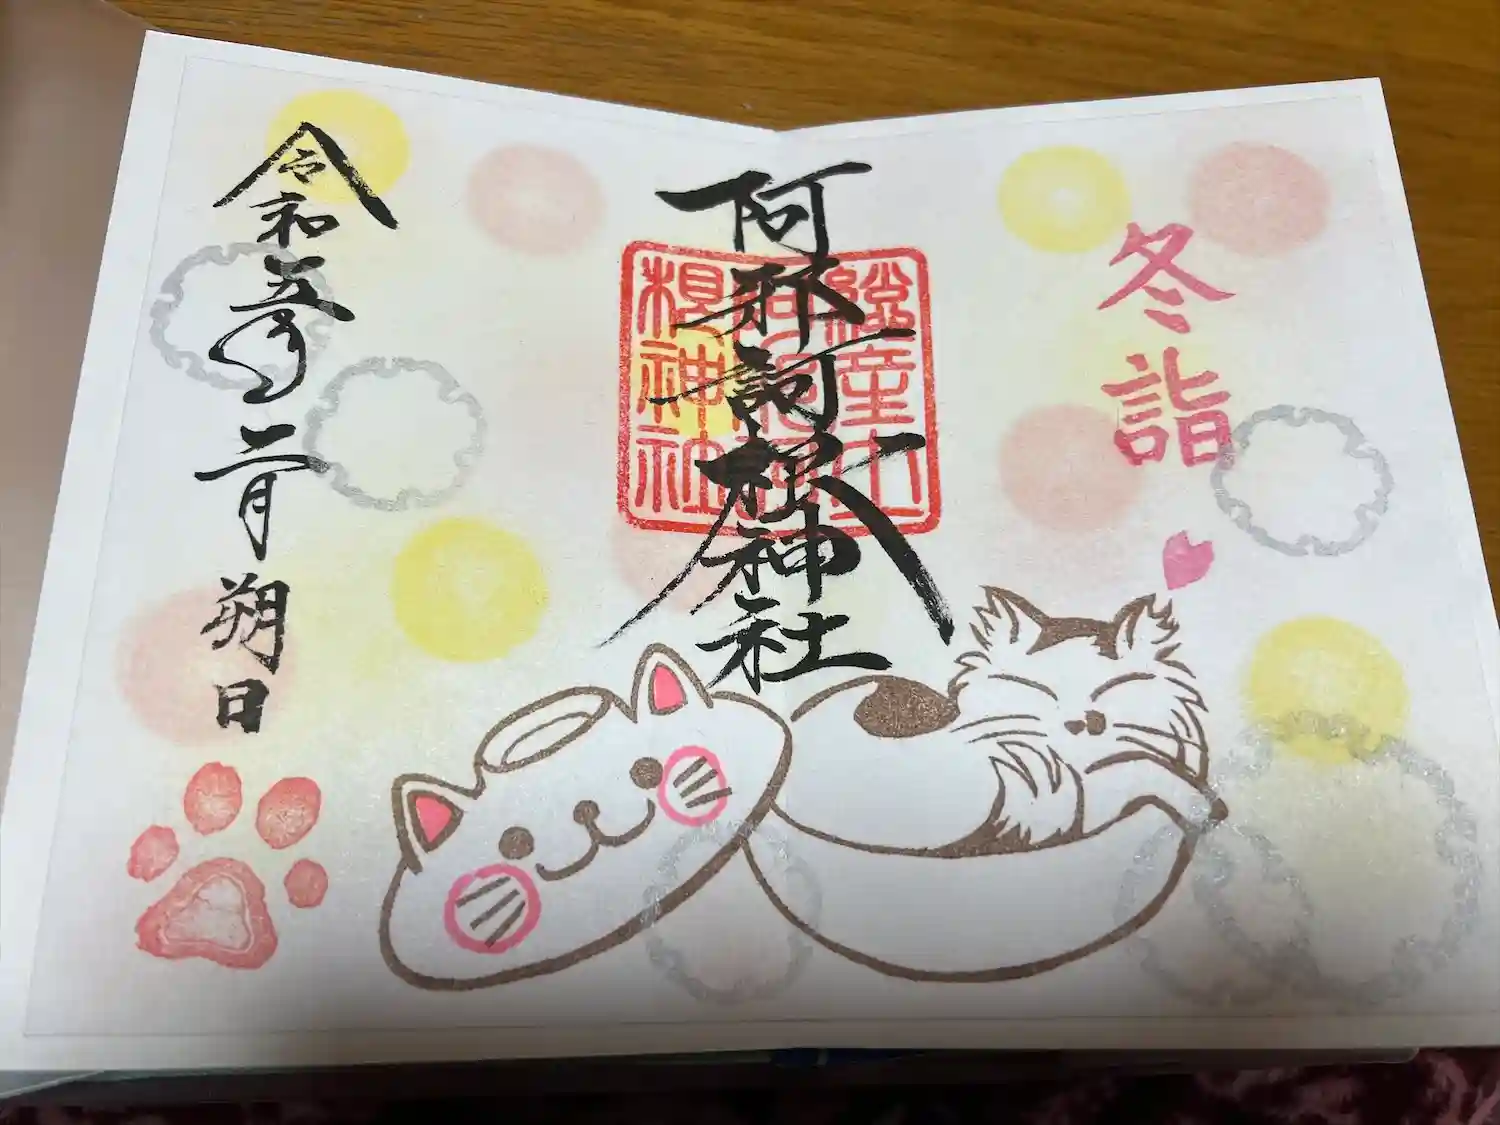 冬詣
阿邪訶根神社
阿邪訶
根神社
令和五年二月朔日